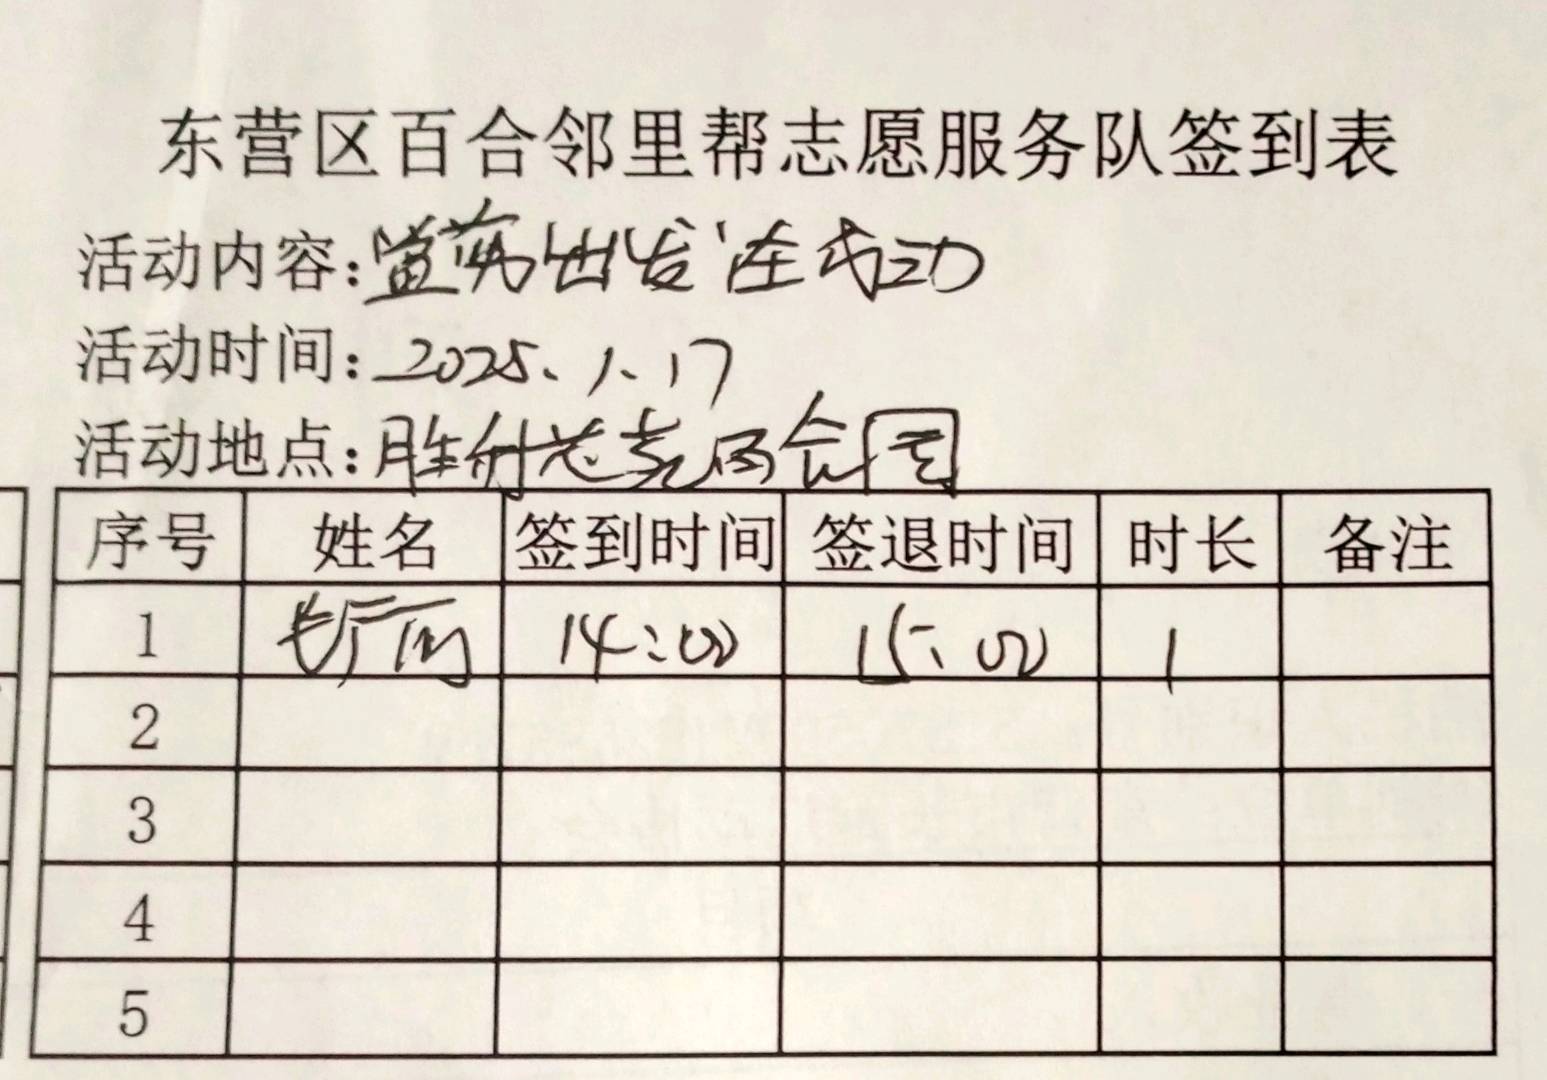 东营区百合邻里帮志愿服务队签到表
活动内容:出发活动
活动时间:2025.1.17
活动地点:胜利
序号 姓名 签到时间 签退时间 时长 备注
1 14:00 15:00 1
2
3
4
5